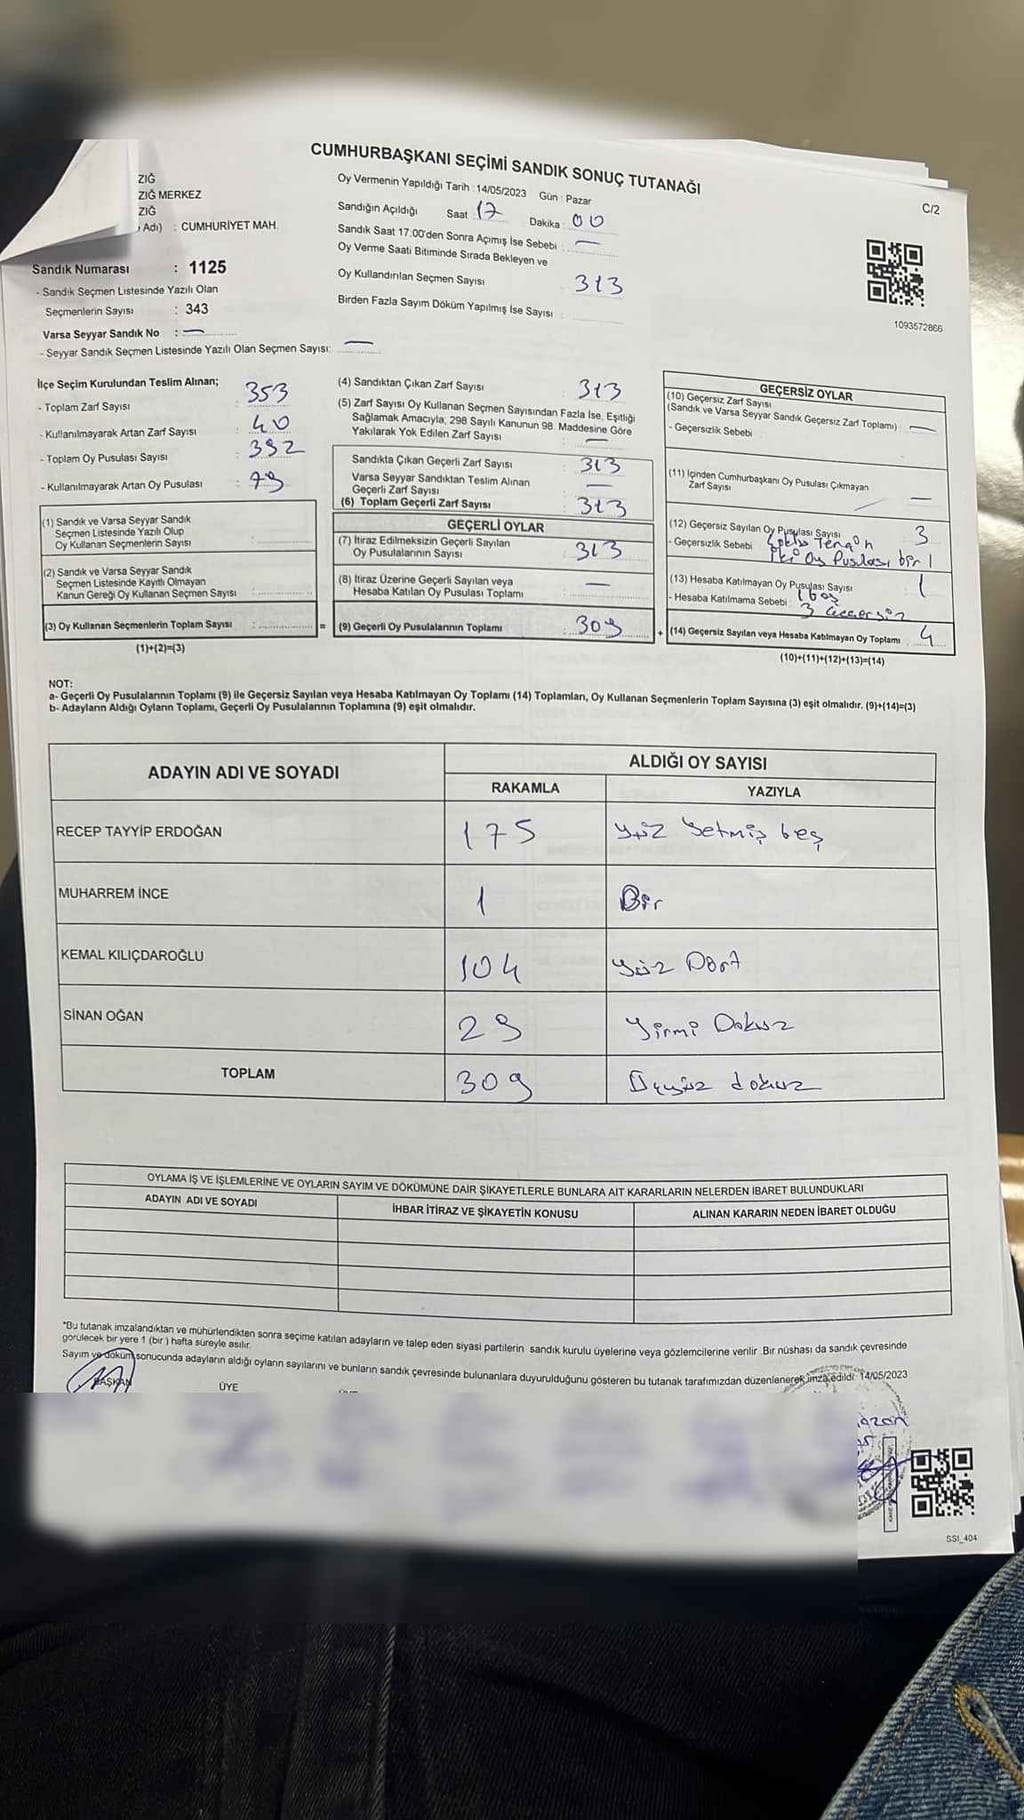 CUMHURBAŞKANI SEÇİMİ SANDIK SONUÇ TUTANAĞI
C/2
ZIĞ
ZIĞ MERKEZ
ZIĞ
Adı) : CUMHURİYET MAH.
Sandık Numarası : 1125
- Sandık Seçmen Listesinde Yazılı Olan
Seçmenlerin Sayısı : 343
Varsa Seyyar Sandık No : —
- Seyyar Sandık Seçmen Listesinde Yazılı Olan Seçmen Sayısı: —
Oy Vermenin Yapıldığı Tarih : 14/05/2023 Gün : Pazar
Sandığın Açıldığı Saat : 17 Dakika : 00
Sandık Saat 17.00'den Sonra Açımış İse Sebebi : —
Oy Verme Saati Bitiminde Sırada Bekleyen ve
Oy Kullandırılan Seçmen Sayısı : 313
Birden Fazla Sayım Döküm Yapılmış İse Sayısı :
1093572866
İlçe Seçim Kurulundan Teslim Alınan;
- Toplam Zarf Sayısı : 353
- Kullanılmayarak Artan Zarf Sayısı : 40
- Toplam Oy Pusulası Sayısı : 392
- Kullanılmayarak Artan Oy Pusulası : 79
(1) Sandık ve Varsa Seyyar Sandık
Seçmen Listesinde Yazılı Olup
Oy Kullanan Seçmenlerin Sayısı :
(2) Sandık ve Varsa Seyyar Sandık
Seçmen Listesinde Kayıtlı Olmayan
Kanun Gereği Oy Kullanan Seçmen Sayısı :
(3) Oy Kullanan Seçmenlerin Toplam Sayısı : =
(1)+(2)=(3)
(4) Sandıktan Çıkan Zarf Sayısı : 313
(5) Zarf Sayısı Oy Kullanan Seçmen Sayısından Fazla İse, Eşitliği
Sağlamak Amacıyla, 298 Sayılı Kanunun 98. Maddesine Göre
Yakılarak Yok Edilen Zarf Sayısı : —
Sandıkta Çıkan Geçerli Zarf Sayısı : 313
Varsa Seyyar Sandıktan Teslim Alınan
Geçerli Zarf Sayısı : —
(6) Toplam Geçerli Zarf Sayısı : 313
GEÇERLİ OYLAR
(7) İtiraz Edilmeksizin Geçerli Sayılan
Oy Pusulalarının Sayısı : 313
(8) İtiraz Üzerine Geçerli Sayılan veya
Hesaba Katılan Oy Pusulası Toplamı : —
(9) Geçerli Oy Pusulalarının Toplamı : 309 +
GEÇERSİZ OYLAR
(10) Geçersiz Zarf Sayısı
(Sandık ve Varsa Seyyar Sandık Geçersiz Zarf Toplamı) : —
- Geçersizlik Sebebi :
(11) İçinden Cumhurbaşkanı Oy Pusulası Çıkmayan
Zarf Sayısı : —
(12) Geçersiz Sayılan Oy Pusulası Sayısı : 3
- Geçersizlik Sebebi :
İki Oy Pusulası bir 1
(13) Hesaba Katılmayan Oy Pusulası Sayısı : 1
- Hesaba Katılmama Sebebi : 1 boş
3 Geçersiz
(14) Geçersiz Sayılan veya Hesaba Katılmayan Oy Toplamı : 4
(10)+(11)+(12)+(13)=(14)
NOT:
a- Geçerli Oy Pusulalarının Toplamı (9) ile Geçersiz Sayılan veya Hesaba Katılmayan Oy Toplamı (14) Toplamları, Oy Kullanan Seçmenlerin Toplam Sayısına (3) eşit olmalıdır. (9)+(14)=(3)
b- Adayların Aldığı Oyların Toplamı, Geçerli Oy Pusulalarının Toplamına (9) eşit olmalıdır.
ADAYIN ADI VE SOYADI ALDIĞI OY SAYISI
RAKAMLA YAZIYLA
RECEP TAYYİP ERDOĞAN 175 Yüz Yetmiş beş
MUHARREM İNCE 1 Bir
KEMAL KILIÇDAROĞLU 104 Yüz Dört
SİNAN OĞAN 29 Yirmi Dokuz
TOPLAM 309 Üçyüz dokuz
OYLAMA İŞ VE İŞLEMLERİNE VE OYLARIN SAYIM VE DÖKÜMÜNE DAİR ŞİKAYETLERLE BUNLARA AİT KARARLARIN NELERDEN İBARET BULUNDUKLARI
ADAYIN ADI VE SOYADI İHBAR İTİRAZ VE ŞİKAYETİN KONUSU ALINAN KARARIN NEDEN İBARET OLDUĞU
*Bu tutanak imzalandıktan ve mühürlendikten sonra seçime katılan adayların ve talep eden siyasi partilerin sandık kurulu üyelerine veya gözlemcilerine verilir. Bir nüshası da sandık çevresinde
görülecek bir yere 1 (bir) hafta süreyle asılır.
Sayım ve döküm sonucunda adayların aldığı oyların sayılarını ve bunların sandık çevresinde bulunanlara duyurulduğunu gösteren bu tutanak tarafımızdan düzenlenerek imza edildi. 14/05/2023
BAŞKAN ÜYE
SSI_404